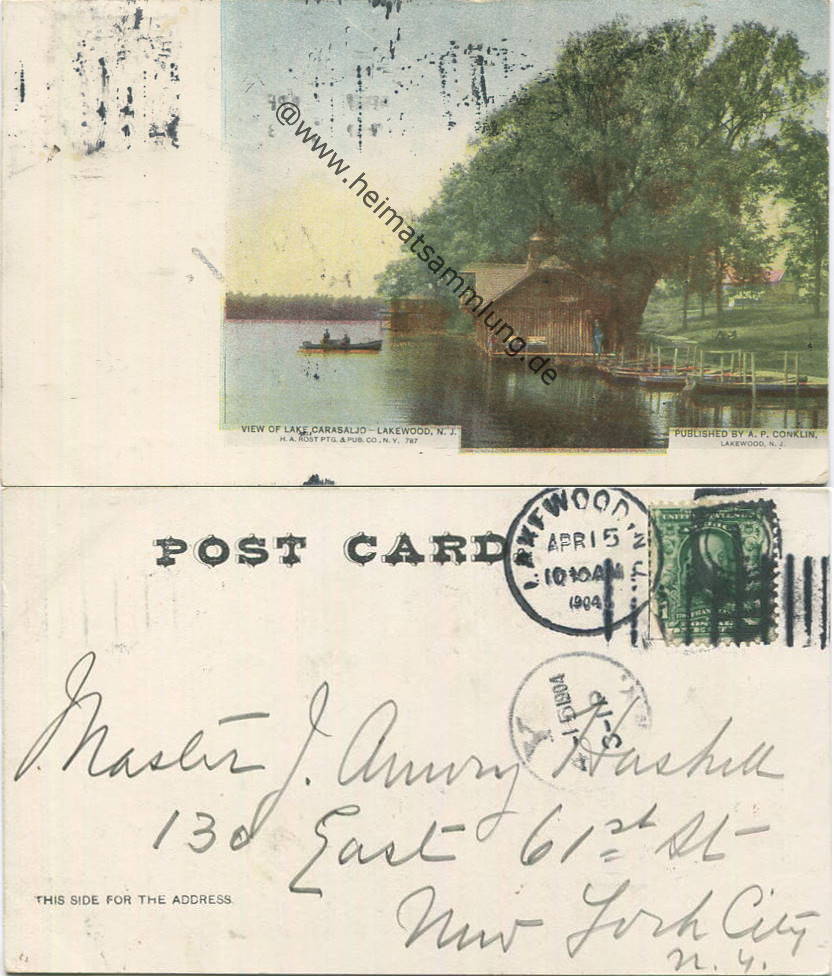 @www.heimatsammlung.de
VIEW OF LAKE CARASALJO - LAKEWOOD, N. J.
H. A. ROST PTG. & PUB. CO., N. Y. 787
PUBLISHED BY A. P. CONKLIN,
LAKEWOOD, N. J.
POST CARD
LAKEWOOD, N.J.
APR 15
10 AM
1904
4-15 1904
3-P
Master J. Amory Haskell
130 East 61st St
THIS SIDE FOR THE ADDRESS.
New York City
N. Y.